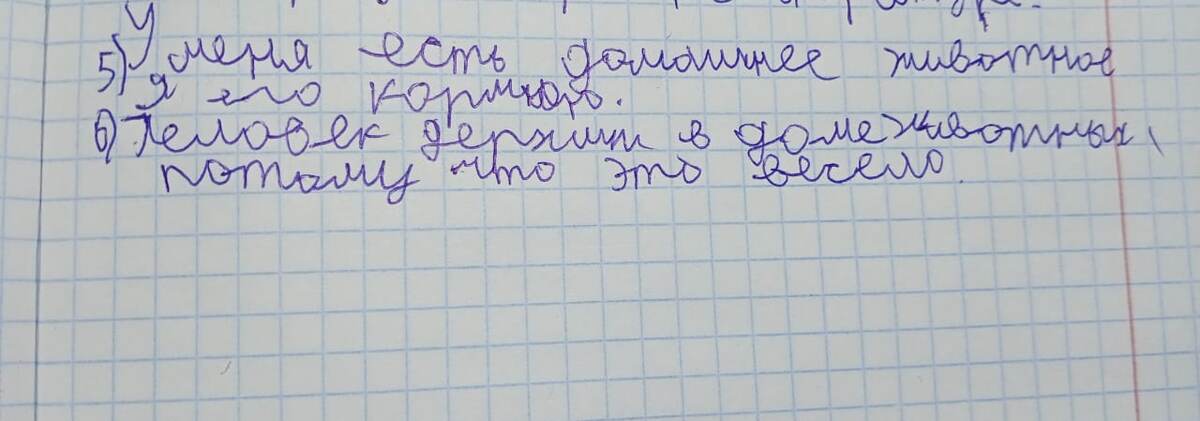 5) У меня есть домашнее животное
я его кормлю.
6) Человек держит в доме животных,
потому что это весело.